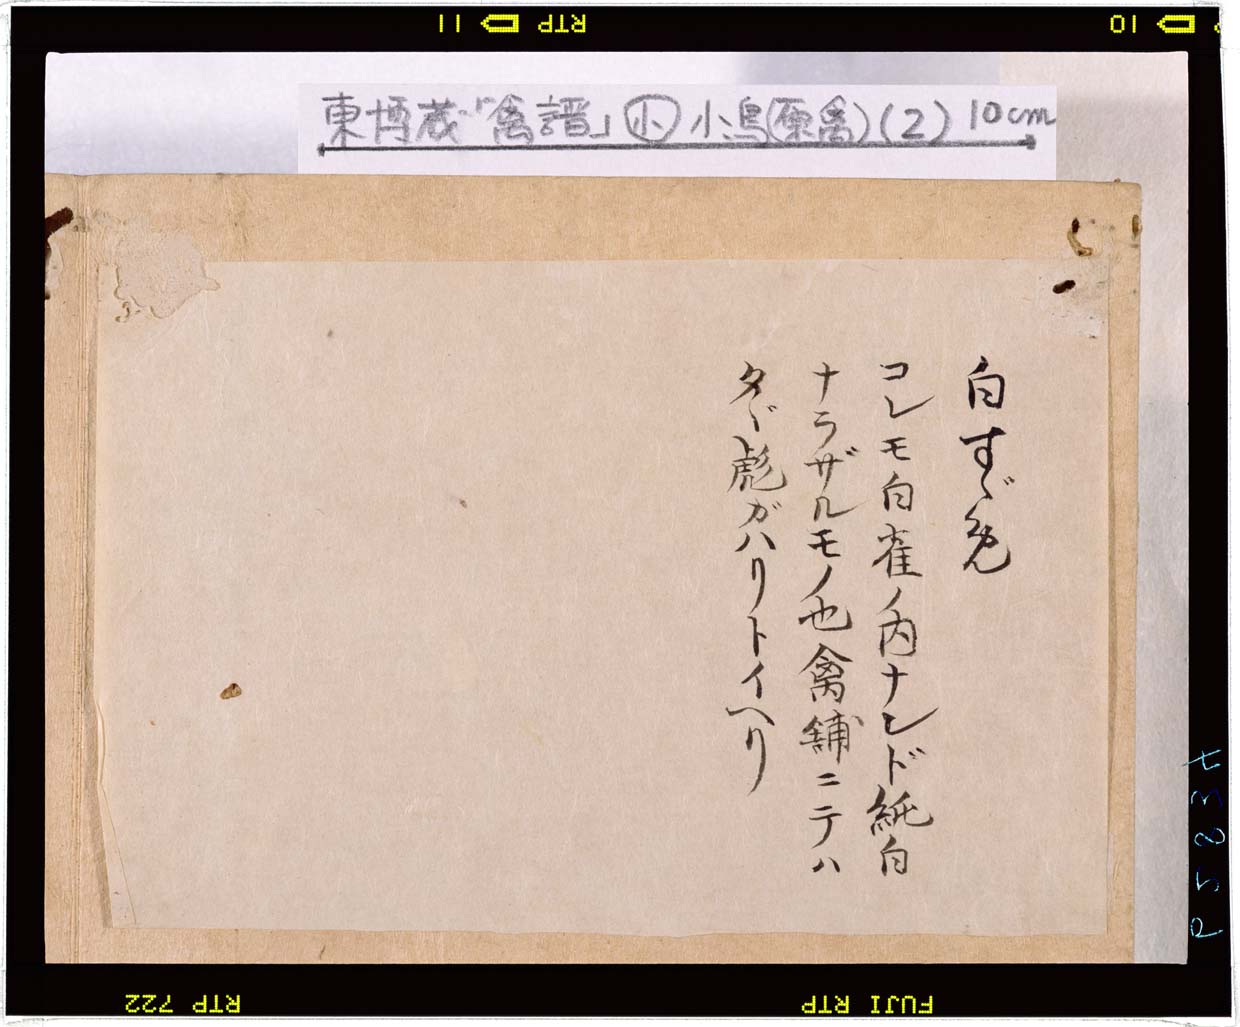 11 RTP 10
東博蔵「禽譜」小 小鳥(原禽)(2) 10cm
白すゞめ
コレモ白雀ノ内ナレド純白
ナラザルモノ也禽舗ニテハ
タヾ彪ガハリトイヘリ
RTP 722 FUJI RTP